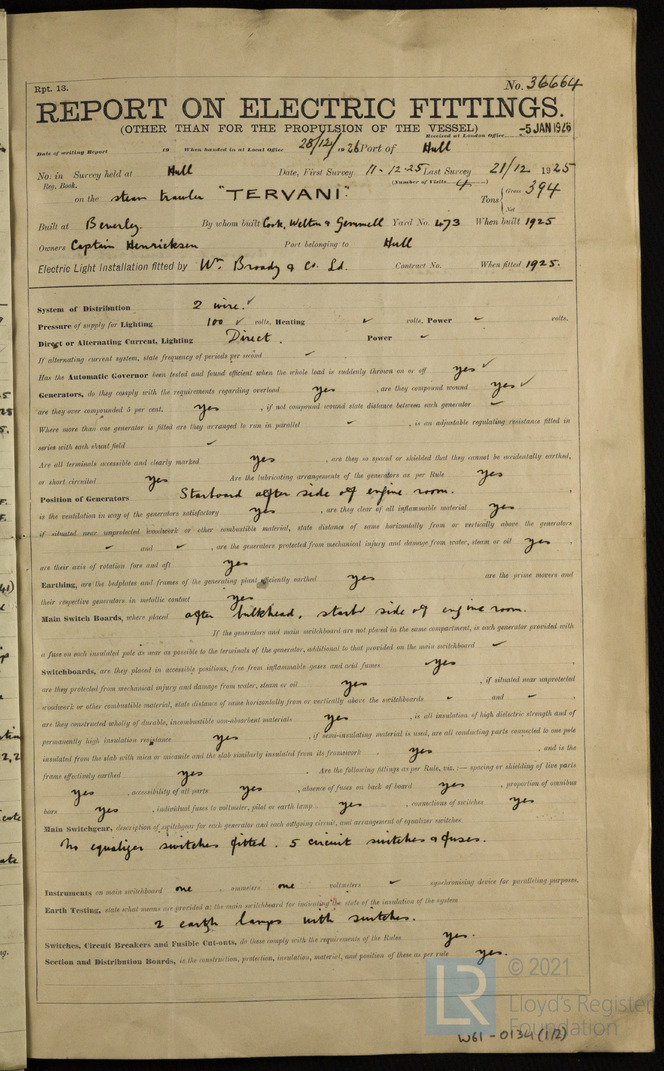 Rpt. 13.
No. 36664
REPORT ON ELECTRIC FITTINGS.
(OTHER THAN FOR THE PROPULSION OF THE VESSEL)
Received at London Office -5 JAN 1926
Date of writing Report 19 When handed in at Local Office 28/12/ 19 26 Port of Hull
No. in Survey held at Hull Date, First Survey 11-12-25 Last Survey 21/12 1925
Reg. Book. (Number of Visits 4)
on the steam trawler "TERVANI" Tons { Gross 394
Net
Built at Beverley. By whom built Cook, Welton & Gemmell Yard No. 473 When built 1925
Owners Captain Henricksen Port belonging to Hull
Electric Light Installation fitted by Wm Broady & Co. Ld. Contract No. When fitted 1925.
System of Distribution 2 wire. ✓
Pressure of supply for Lighting 100 ✓ volts, Heating ✓ volts, Power ✓ volts.
Direct or Alternating Current, Lighting Direct. Power ✓
If alternating current system, state frequency of periods per second ✓
Has the Automatic Governor been tested and found efficient when the whole load is suddenly thrown on or off yes ✓
Generators, do they comply with the requirements regarding overload yes, are they compound wound yes ✓
are they over compounded 5 per cent. yes, if not compound wound state distance between each generator ✓
Where more than one generator is fitted are they arranged to run in parallel ✓, is an adjustable regulating resistance fitted in
series with each shunt field ✓
Are all terminals accessible and clearly marked yes, are they so spaced or shielded that they cannot be accidentally earthed,
or short circuited yes Are the lubricating arrangements of the generators as per Rule yes
Position of Generators Starboard after side of engine room.
is the ventilation in way of the generators satisfactory yes, are they clear of all inflammable material yes
if situated near unprotected woodwork or other combustible material, state distance of same horizontally from or vertically above the generators
✓ and ✓, are the generators protected from mechanical injury and damage from water, steam or oil yes,
are their axis of rotation fore and aft yes
Earthing, are the bedplates and frames of the generating plant efficiently earthed yes are the prime movers and
their respective generators in metallic contact yes
Main Switch Boards, where placed after bulkhead, starbd side of engine room.
If the generators and main switchboard are not placed in the same compartment, is each generator provided with
a fuse on each insulated pole as near as possible to the terminals of the generator, additional to that provided on the main switchboard ✓
Switchboards, are they placed in accessible positions, free from inflammable gases and acid fumes yes,
are they protected from mechanical injury and damage from water, steam or oil yes, if situated near unprotected
woodwork or other combustible material, state distance of same horizontally from or vertically above the switchboards ✓ and ✓,
are they constructed wholly of durable, incombustible non-absorbent materials yes, is all insulation of high dielectric strength and of
permanently high insulation resistance yes, if semi-insulating material is used, are all conducting parts connected to one pole
insulated from the slab with mica or micanite and the slab similarly insulated from its framework yes, and is the
frame effectively earthed yes. Are the following fittings as per Rule, viz.:— spacing or shielding of live parts
yes, accessibility of all parts yes, absence of fuses on back of board yes, proportion of omnibus
bars yes, individual fuses to voltmeter, pilot or earth lamp yes, connections of switches yes
Main Switchgear, description of switchgear for each generator and each outgoing circuit, and arrangement of equalizer switches
No equalizer switches fitted. 5 circuit switches & fuses.
Instruments on main switchboard one ammeters one voltmeters ✓ synchronising device for paralleling purposes.
Earth Testing, state what means are provided at the main switchboard for indicating the state of the insulation of the system
2 earth lamps with switches.
Switches, Circuit Breakers and Fusible Cut-outs, do these comply with the requirements of the Rules yes.
Section and Distribution Boards, is the construction, protection, insulation, material, and position of these as per rule yes.
LR © 2021
Lloyd's Register
Foundation
W61-0134 (1/2)